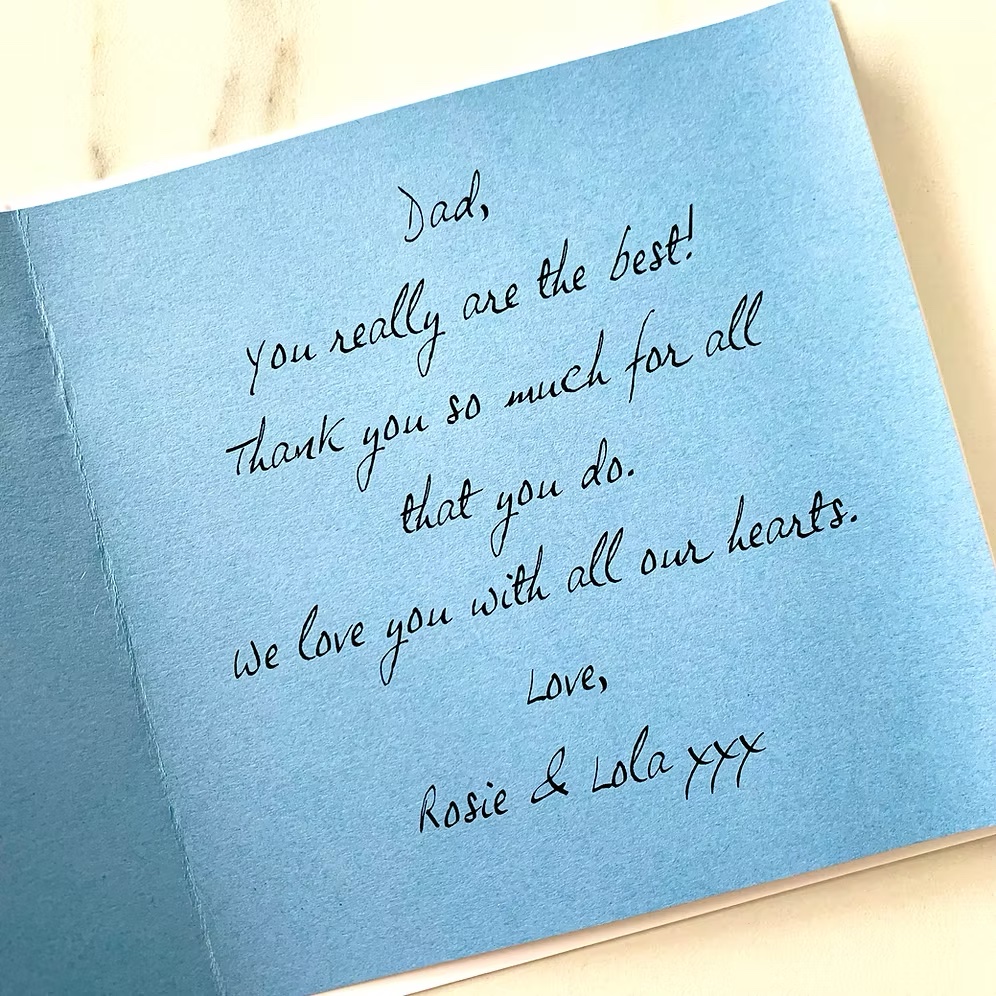 Dad,
You really are the best!
Thank you so much for all
that you do.
We love you with all our hearts.
Love,
Rosie & Lola xxx